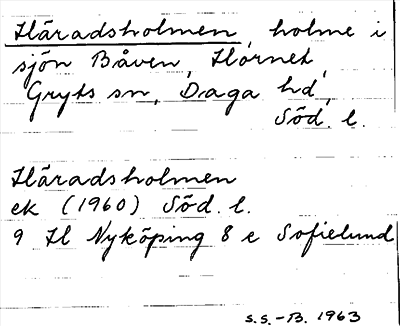 Häradsholmen, holme i
sjön Båven, Hornet,
Gryts sn, Daga hd,
Söd. l.
Häradsholmen
ek (1960) Söd. l.
9 H Nyköping 8 e Sofielund
S.S.-B. 1963